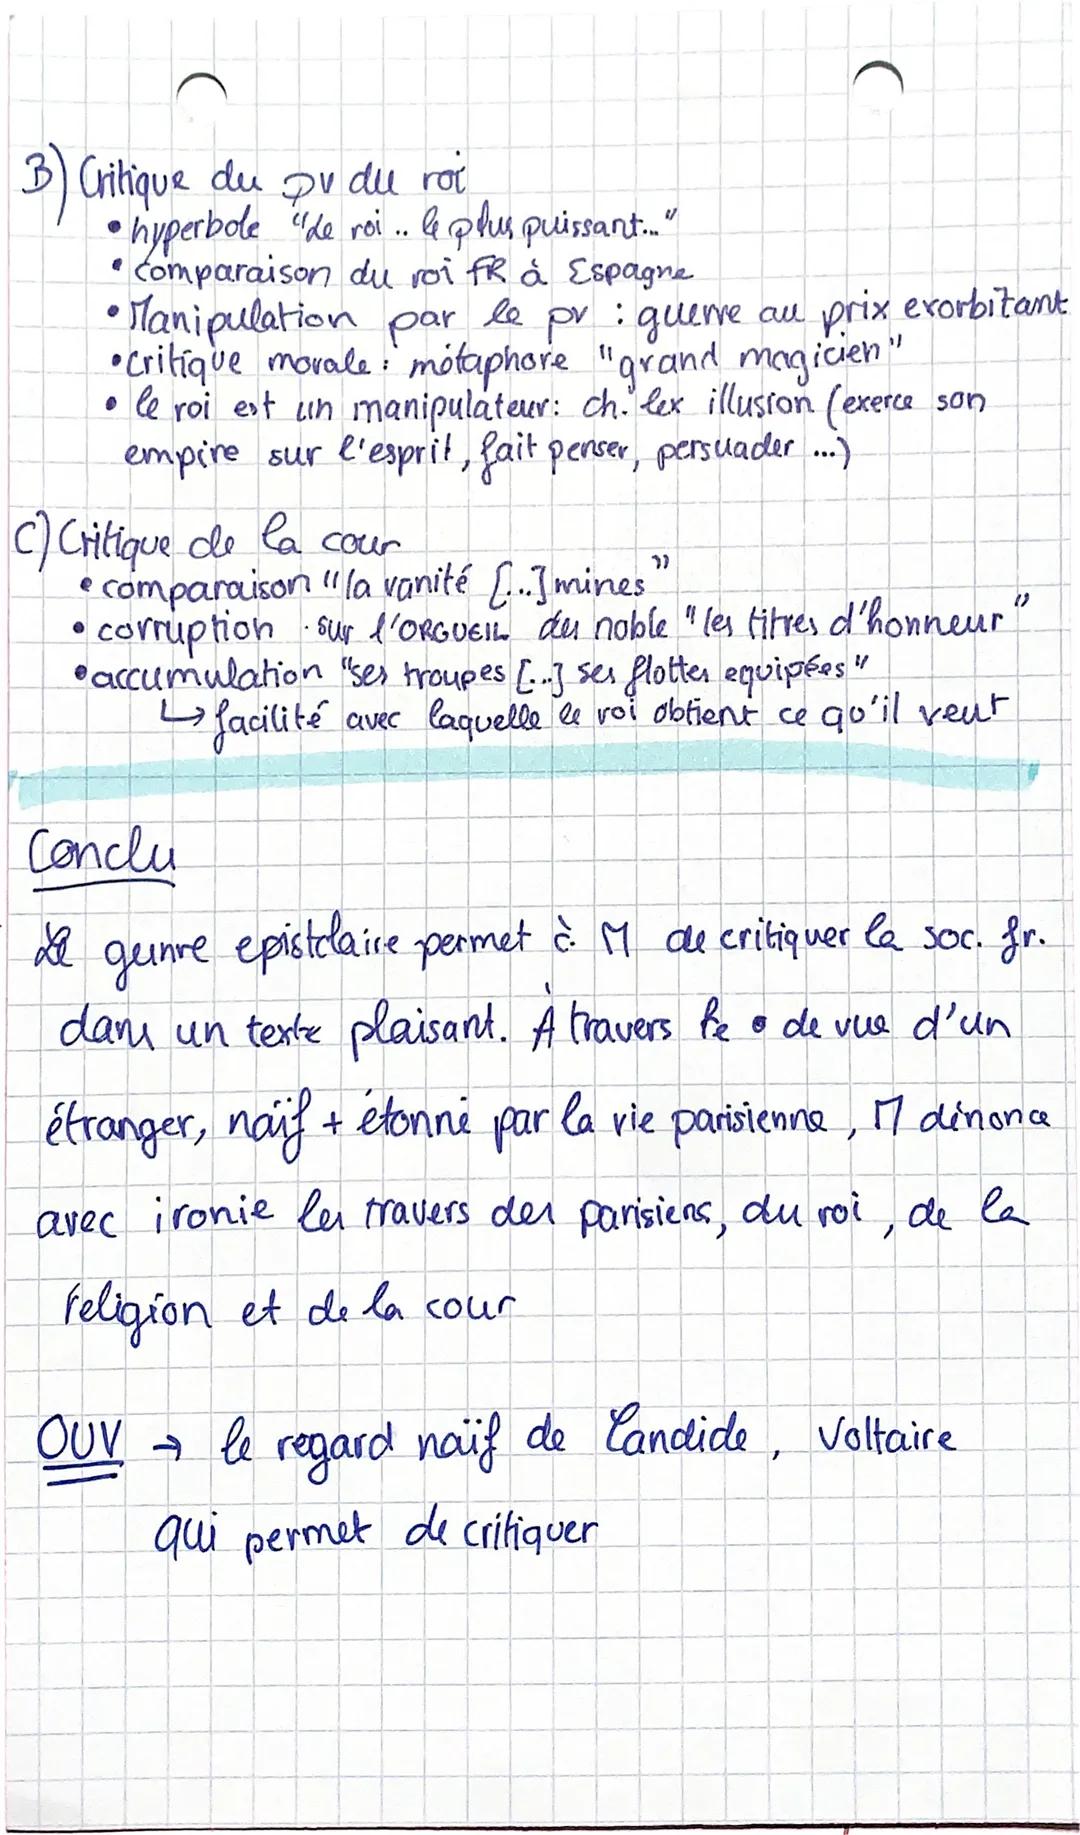 B) Critique du pv du roi
• hyperbole "le roi .. le plus puissant..."
• comparaison du roi FR à Espagne
• Manipulation par le pv : guerre au prix exorbitant
• critique morale : métaphore "grand magicien"
• le roi est un manipulateur: ch. lex illusion (exerce son
empire sur l'esprit, fait penser, persuader ...)
C) Critique de la cour
• comparaison "la vanité [...] mines"
• corruption sur l'ORGUEIL des noble "les titres d'honneur"
• accumulation "ses troupes [...] ses flottes equipées"
↳ facilité avec laquelle le roi obtient ce qu'il veut
Conclu
Le genre epistolaire permet à M de critiquer la soc. fr.
dans un texte plaisant. À travers le • de vue d'un
étranger, naïf + étonné par la vie parisienne, M dénonce
avec ironie les travers des parisiens, du roi, de la
religion et de la cour
OUV → le regard naïf de Candide, Voltaire
qui permet de critiquer